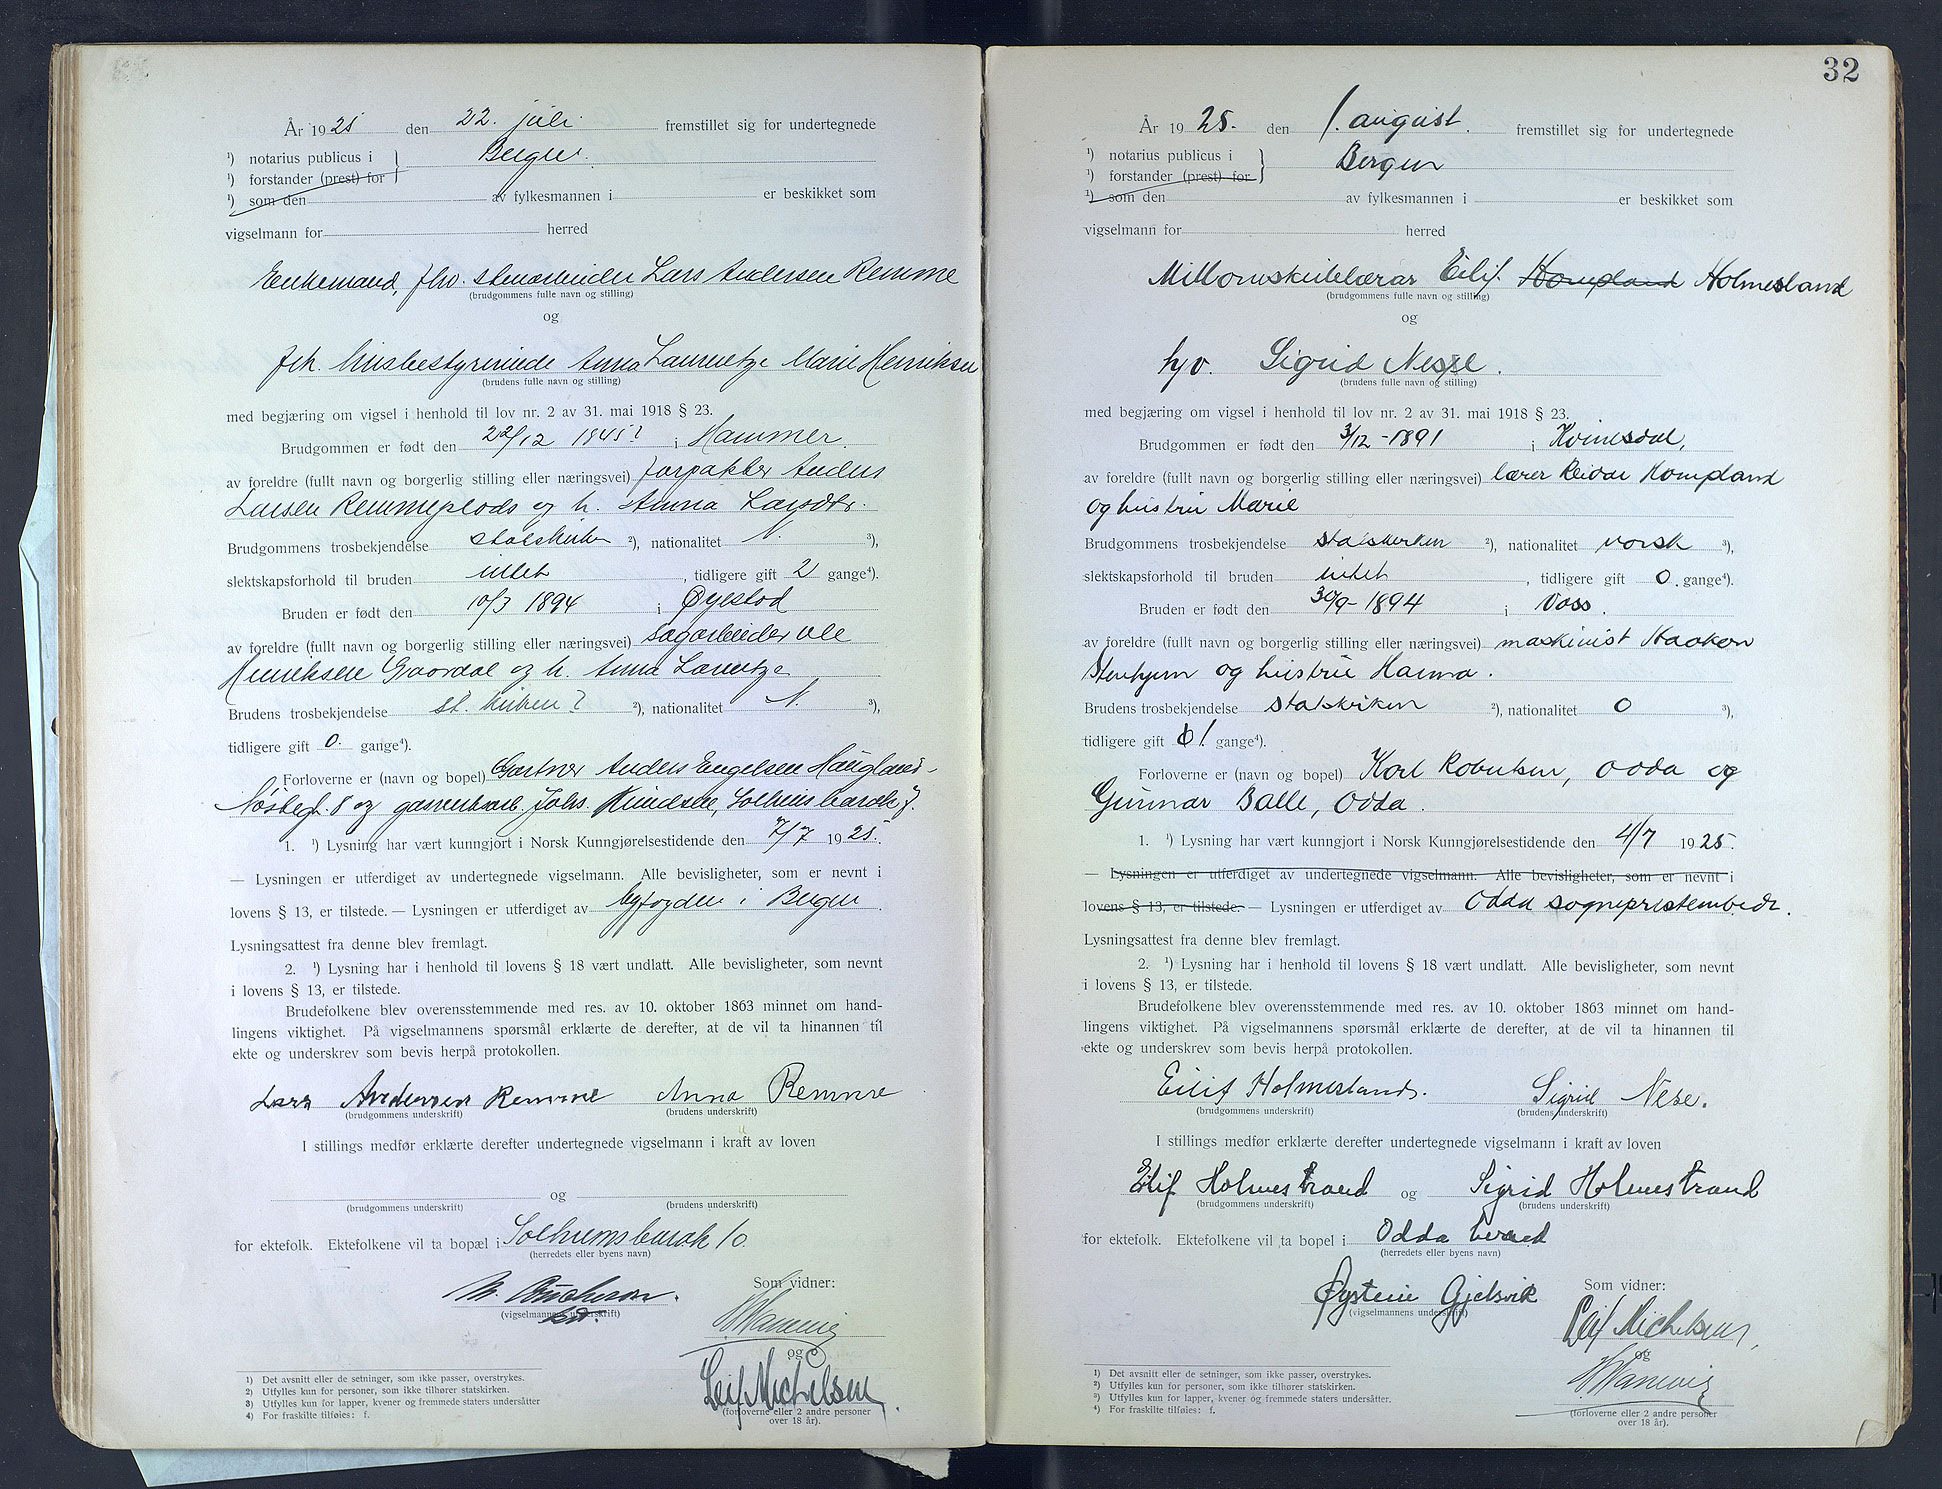 År 1925 den 22. juli fremstillet sig for undertegnede
¹) notarius publicus i Bergen.
¹) forstander (prest) for
¹) som den av fylkesmannen i er beskikket som
vigselmann for herred
Enkemand, fhv. stenarbeider Lars Andersen Remme
(brudgommens fulle navn og stilling)
og
frk. husbestyrerinde Anna Laurentze Marie Henriksen
(brudens fulle navn og stilling)
med begjæring om vigsel i henhold til lov nr. 2 av 31. mai 1918 § 23.
Brudgommen er født den 22/12 1845? i Hammer.
av foreldre (fullt navn og borgerlig stilling eller næringsvei) forpakter Anders
Larsen Remmeplads og h. Anna Larsdtr.
Brudgommens trosbekjendelse statskirken ²), nationalitet N. ³),
slektskapsforhold til bruden intet, tidligere gift 2 gange⁴).
Bruden er født den 10/3 1894 i Øyestad
av foreldre (fullt navn og borgerlig stilling eller næringsvei) sagarbeider Ole
Henriksen og h. Anna Laurentze
Brudens trosbekjendelse st. kirken? ²), nationalitet N. ³),
tidligere gift 0. gange⁴).
Forloverne er (navn og bopel) Gartner Anders Engelsen Haugland,
8 og Johs. Knudsen, 7.
1. ¹) Lysning har vært kunngjort i Norsk Kunngjørelsestidende den 7/7 1925.
— Lysningen er utferdiget av undertegnede vigselmann. Alle bevisligheter, som er nevnt i
lovens § 13, er tilstede. — Lysningen er utferdiget av byfogden i Bergen
Lysningsattest fra denne blev fremlagt.
2. ¹) Lysning har i henhold til lovens § 18 vært undlatt. Alle bevisligheter, som nevnt
i lovens § 13, er tilstede.
Brudefolkene blev overensstemmende med res. av 10. oktober 1863 minnet om hand-
lingens viktighet. På vigselmannens spørsmål erklærte de derefter, at de vil ta hinannen til
ekte og underskrev som bevis herpå protokollen.
Lars Andersen Remme Anna Remme
(brudgommens underskrift) (brudens underskrift)
I stillings medfør erklærte derefter undertegnede vigselmann i kraft av loven
og
(brudgommens underskrift) (brudens underskrift)
for ektefolk. Ektefolkene vil ta bopæl i Solheimsbarak 10
(herredets eller byens navn)
Som vidner:
(vigselmannens underskrift)
og
Leif Michelsen
(forloverne eller 2 andre personer
over 18 år).
1) Det avsnitt eller de setninger, som ikke passer, overstrykes.
2) Utfylles kun for personer, som ikke tilhører statskirken.
3) Utfylles kun for lapper, kvener og fremmede staters undersåtter
4) For fraskilte tilføies: f.
32
År 1925. den 1. august. fremstillet sig for undertegnede
¹) notarius publicus i Bergen
¹) forstander (prest) for
¹) som den av fylkesmannen i er beskikket som
vigselmann for herred
Millomskulelærar Eilif Kompland Holmesland
(brudgommens fulle navn og stilling)
og
frv. Sigrid Nesse.
(brudens fulle navn og stilling)
med begjæring om vigsel i henhold til lov nr. 2 av 31. mai 1918 § 23.
Brudgommen er født den 3/12-1891 i Kvinesdal,
av foreldre (fullt navn og borgerlig stilling eller næringsvei) lærer Reidar Kompland
og hustru Marie
Brudgommens trosbekjendelse statskirken ²), nationalitet norsk ³),
slektskapsforhold til bruden intet, tidligere gift 0. gange⁴).
Bruden er født den 30/9-1894 i Voss.
av foreldre (fullt navn og borgerlig stilling eller næringsvei) maskinist Haakon
Stenhjem og hustru Hanna.
Brudens trosbekjendelse statskirken ²), nationalitet 0 ³),
tidligere gift 1. gange⁴).
Forloverne er (navn og bopel) Karl Robertsen, Odda og
Gunnar Balle, Odda.
1. ¹) Lysning har vært kunngjort i Norsk Kunngjørelsestidende den 4/7 1925.
— Lysningen er utferdiget av undertegnede vigselmann. Alle bevisligheter, som er nevnt i
lovens § 13, er tilstede. — Lysningen er utferdiget av Odda sogneprestembede.
Lysningsattest fra denne blev fremlagt.
2. ¹) Lysning har i henhold til lovens § 18 vært undlatt. Alle bevisligheter, som nevnt
i lovens § 13, er tilstede.
Brudefolkene blev overensstemmende med res. av 10. oktober 1863 minnet om hand-
lingens viktighet. På vigselmannens spørsmål erklærte de derefter, at de vil ta hinannen til
ekte og underskrev som bevis herpå protokollen.
Eilif Holmesland. Sigrid Nese.
(brudgommens underskrift) (brudens underskrift)
I stillings medfør erklærte derefter undertegnede vigselmann i kraft av loven
Eilif Holmestrand og Sigrid Holmestrand
(brudgommens underskrift) (brudens underskrift)
for ektefolk. Ektefolkene vil ta bopel i Odda herred
(herredets eller byens navn)
Øystein Gjelsvik Som vidner:
(vigselmannens underskrift)
Leif Michelsen,
og
(forloverne eller 2 andre personer
over 18 år).
¹) Det avsnitt eller de setninger, som ikke passer, overstrykes.
²) Utfylles kun for personer, som ikke tilhører statskirken.
³) Utfylles kun for lapper, kvener og fremmede staters undersåtter.
⁴) For fraskilte tilføies: f.